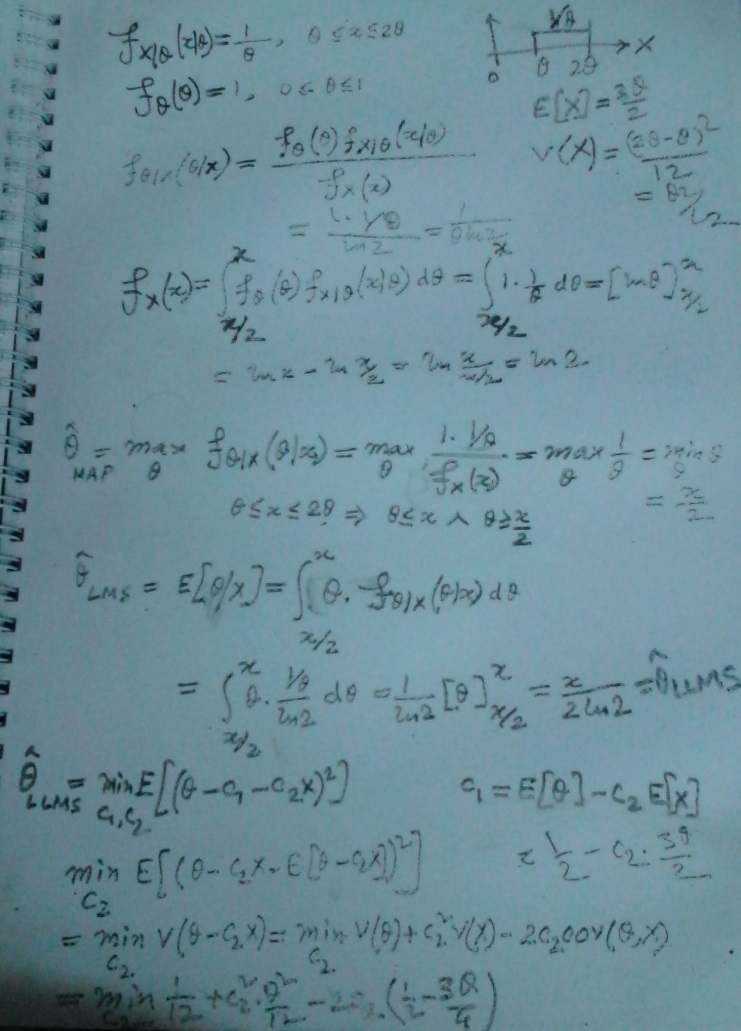 f_{X|θ}(x|θ) = 1/θ, θ ≤ x ≤ 2θ
1/θ
0 θ 2θ X
f_θ(θ) = 1, 0 ≤ θ ≤ 1
E[X] = 3θ/2
f_{θ|X}(θ|x) = f_θ(θ) f_{X|θ}(x|θ) / f_X(x)
V(X) = (2θ-θ)²/12
= θ²/12
= 1·1/θ / ln2 = 1/(θ ln2)
f_X(x) = ∫_{x/2}^{x} f_θ(θ) f_{X|θ}(x|θ) dθ = ∫_{x/2}^{x} 1·1/θ dθ = [lnθ]_{x/2}^{x}
= ln x - ln x/2 = ln x/(x/2) = ln 2
θ̂_{MAP} = max_θ f_{θ|X}(θ|x) = max_θ 1·1/θ / f_X(x) = max_θ 1/θ = min_θ θ
= x/2
θ ≤ x ≤ 2θ ⇒ θ ≤ x ∧ θ ≥ x/2
θ̂_{LMS} = E[θ|X] = ∫_{x/2}^{x} θ · f_{θ|X}(θ|x) dθ
= ∫_{x/2}^{x} θ · (1/θ)/ln2 dθ = 1/ln2 [θ]_{x/2}^{x} = x/(2 ln2) = θ̂_{LLMS}
θ̂_{LLMS} = min_{c₁,c₂} E[(θ - c₁ - c₂X)²]
c₁ = E[θ] - c₂ E[X]
= 1/2 - c₂ · 3θ/2
min_{c₂} E[(θ - c₂X - E[θ - c₂X])²]
= min_{c₂} V(θ - c₂X) = min_{c₂} V(θ) + c₂² V(X) - 2c₂ cov(θ, X)
= min_{c₂} 1/12 + c₂² · θ²/12 - 2c₂ · (1/2 - 3θ/4)